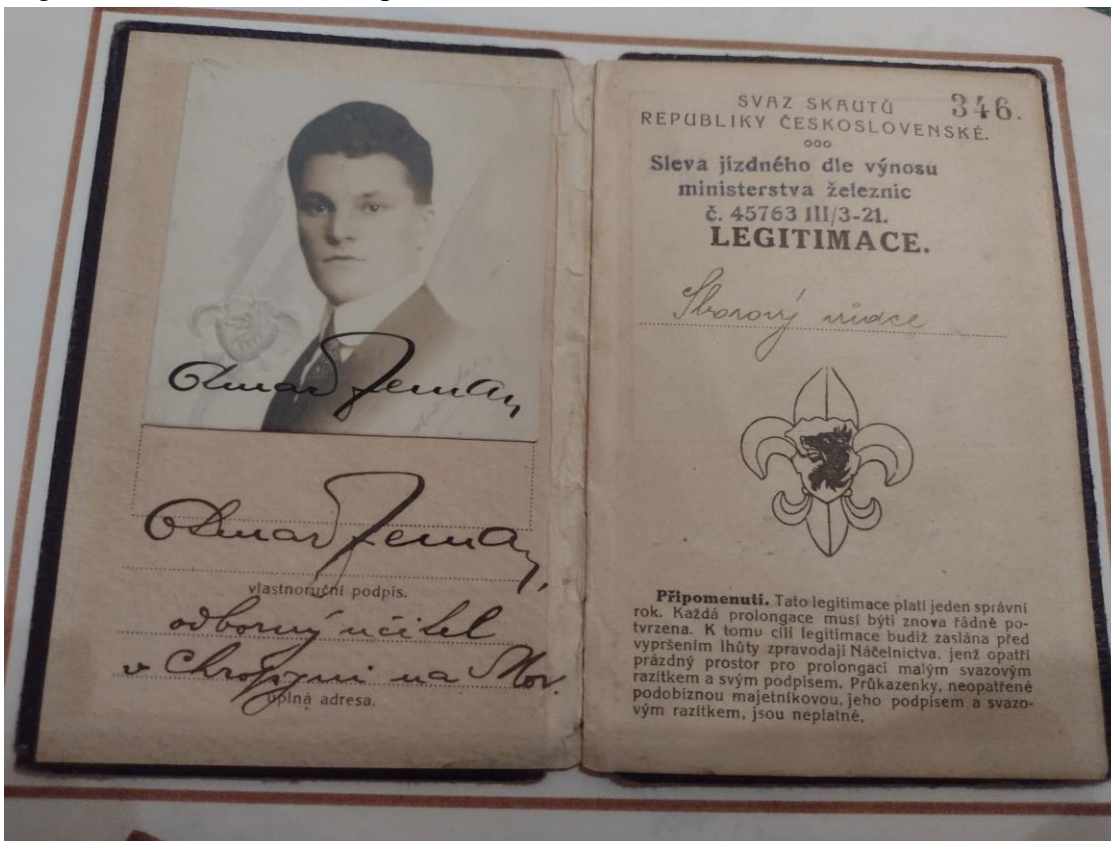 Otmar Zeman
Otmar Zeman,
vlastnoruční podpis.
odborný učitel
v Chropyni na Mor.
úplná adresa.
346.
SVAZ SKAUTŮ
REPUBLIKY ČESKOSLOVENSKÉ.
ooo
Sleva jízdného dle výnosu
ministerstva železnic
č. 45763 III/3-21.
LEGITIMACE.
Sborový vůdce
Připomenutí. Tato legitimace platí jeden správní
rok. Každá prolongace musí býti znova řádně po-
tvrzena. K tomu cíli legitimace budiž zaslána před
vypršením lhůty zpravodaji Náčelnictva, jenž opatří
prázdný prostor pro prolongaci malým svazovým
razítkem a svým podpisem. Průkazenky, neopatřené
podobiznou majetníkovou, jeho podpisem a svazo-
vým razítkem, jsou neplatné,